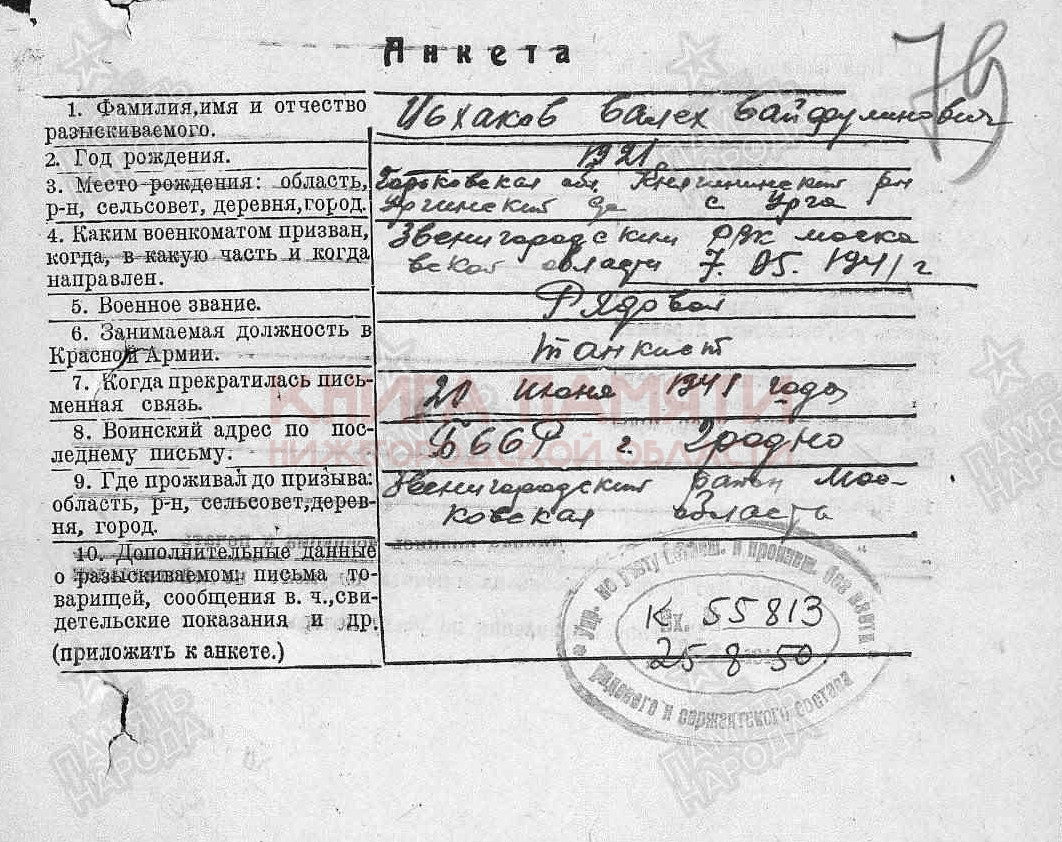 79
Анкета
1. Фамилия,имя и отчество
разыскиваемого.
Исхаков Салех Сайфулинович
2. Год рождения.
1921
3. Место рождения: область,
р-н, сельсовет, деревня,город.
Горьковская обл. Княгининский рн
Ургинский с Урга
4. Каким военкоматом призван,
когда, в какую часть и когда
направлен.
Звенигородским РВК Моско
вской области 7. 05. 1941 г
5. Военное звание.
Рядовой
6. Занимаемая должность в
Красной Армии.
танкист
7. Когда прекратилась пись-
менная связь.
21 июня 1941 года
8. Воинский адрес по пос-
леднему письму.
БССР г. Гродно
9. Где проживал до призыва:
область, р-н, сельсовет,дерев-
ня, город.
Звенигородский район Мос-
ковская область
10. Дополнительные данные
о разыскиваемом: письма то-
варищей, сообщения в. ч.,сви-
детельские показания и др.
(приложить к анкете.)
Упр. по учету погибш. и пропавш. без вести
Вх.
К 55813
25-8-50
рядового и сержантского состава
КНИГА ПАМЯТИ
НИЖЕГОРОДСКОЙ ОБЛАСТИ
ПАМЯТЬ
НАРОДА